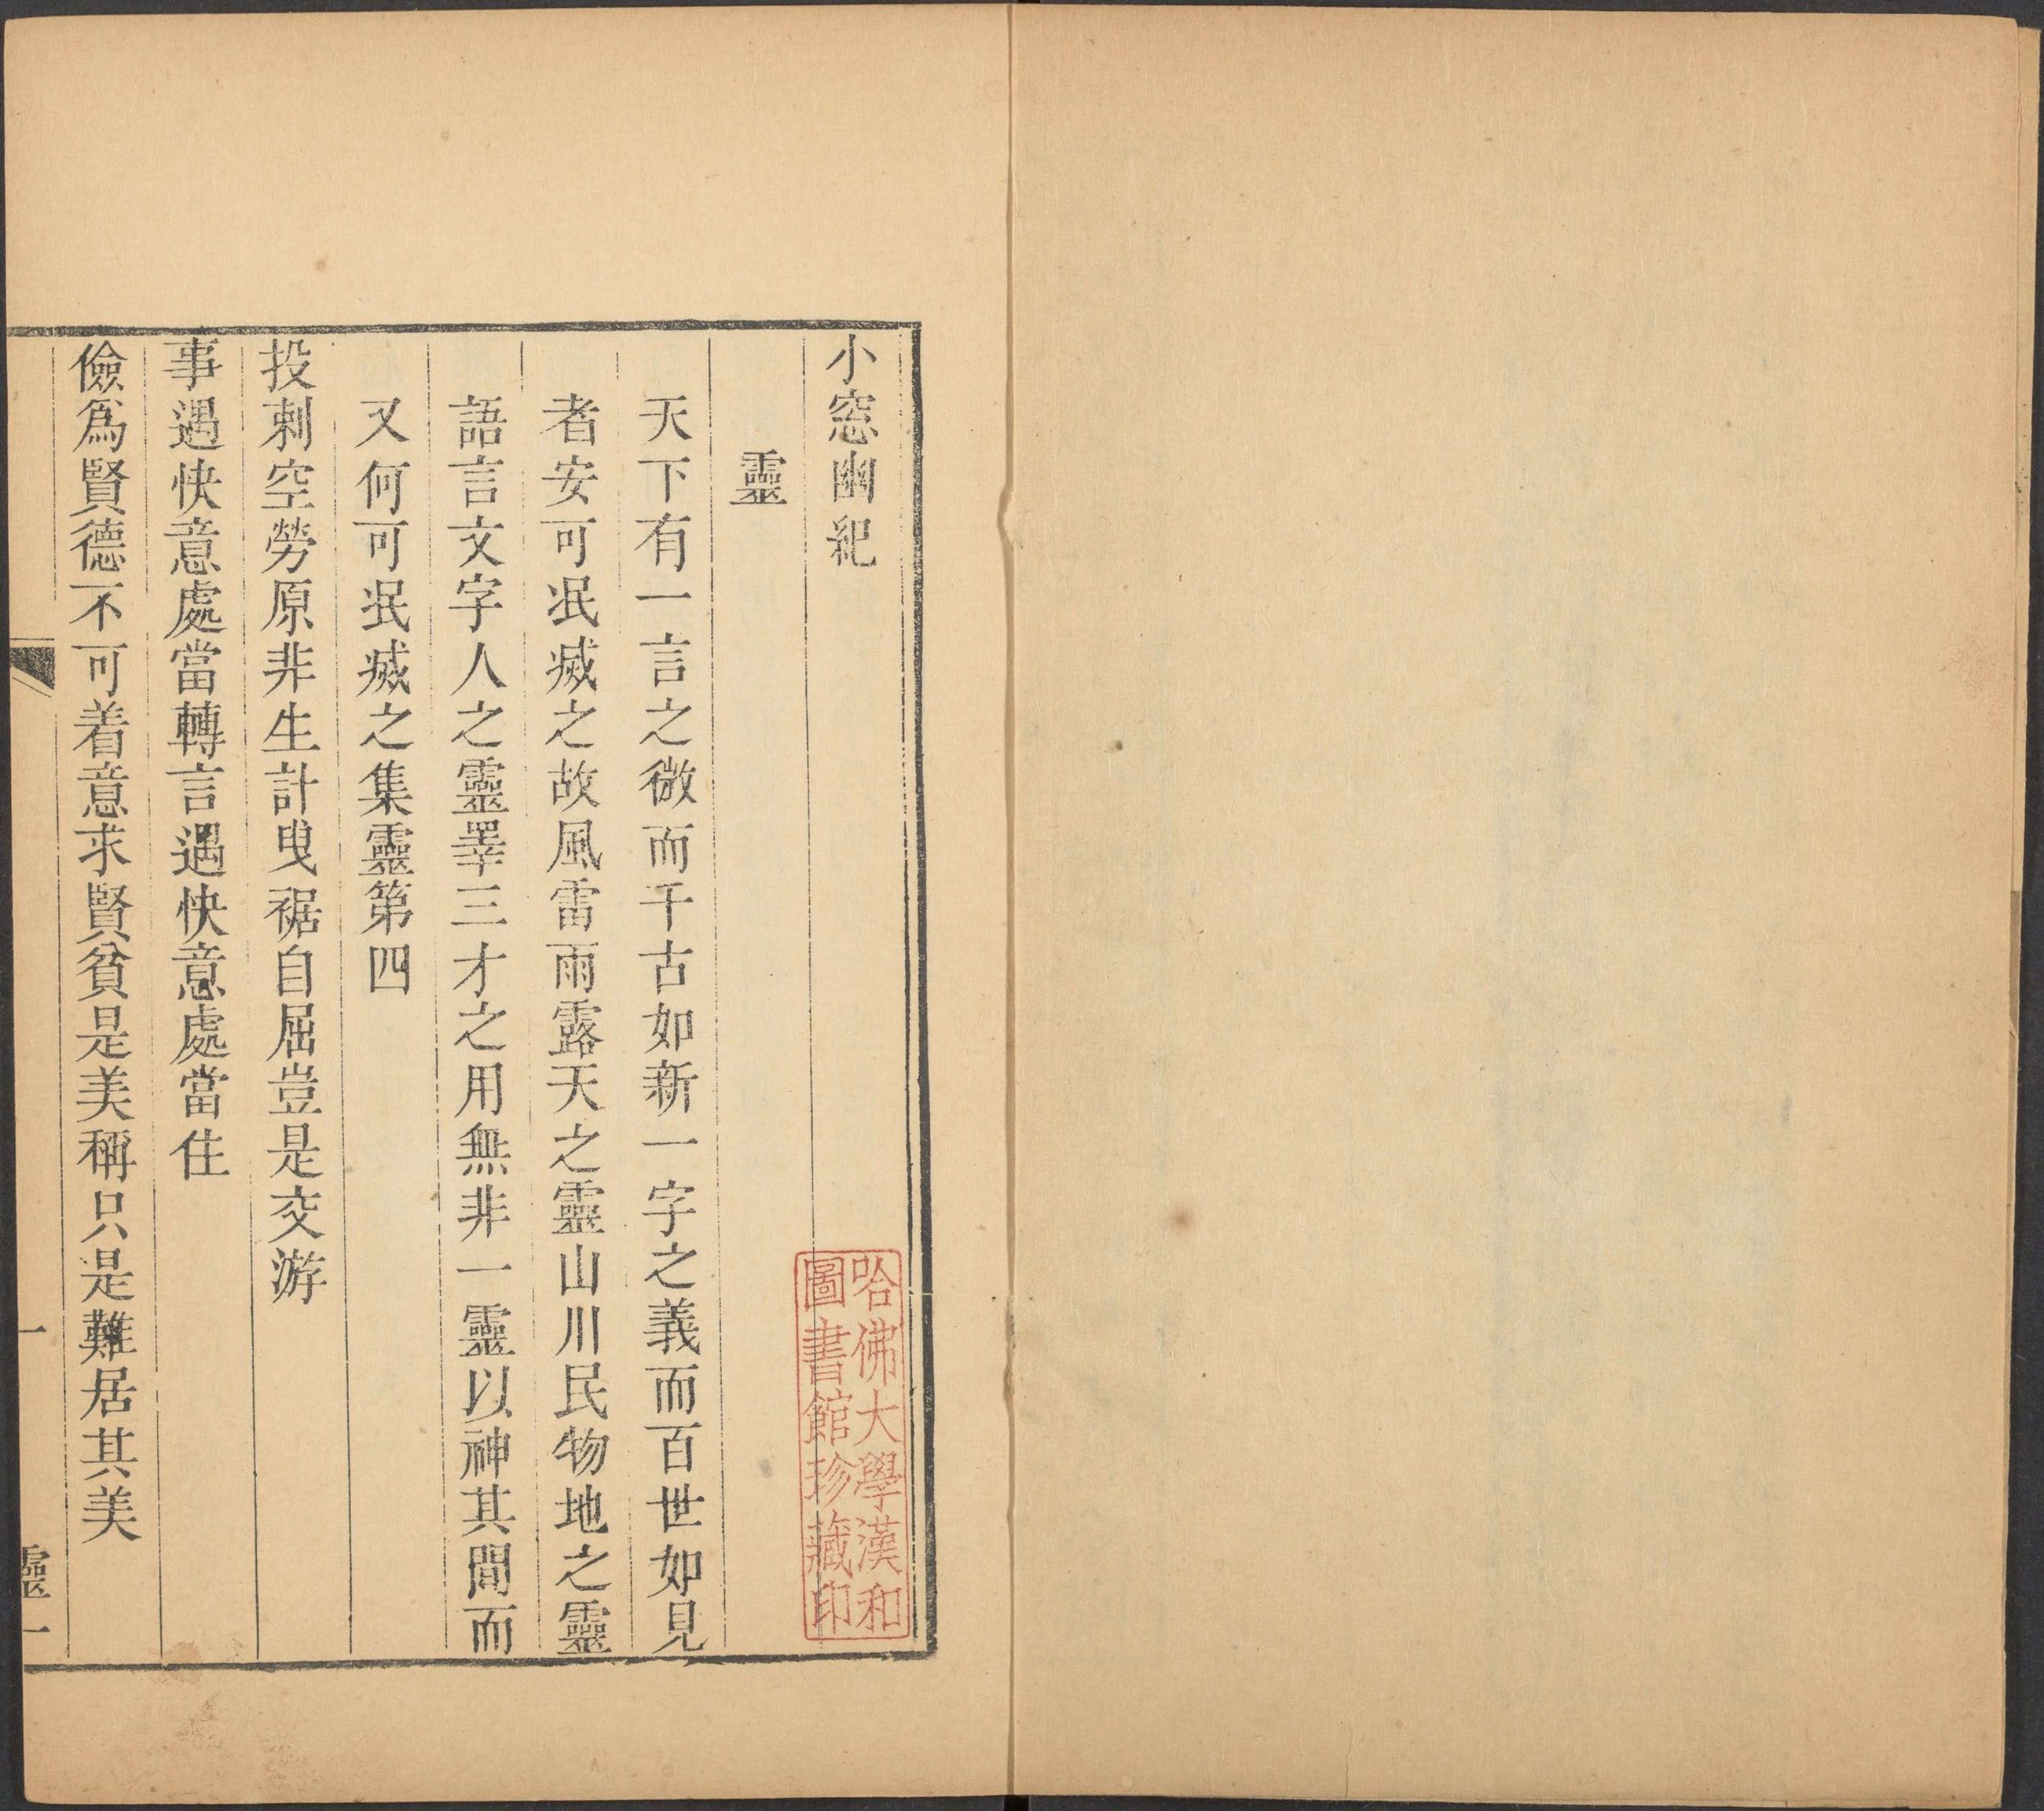 小窓幽紀
靈
天下有一言之微而千古如新一字之義而百世如見
者安可泯滅之故風雷雨露天之靈山川民物地之靈
語言文字人之靈睪三才之用無非一靈以神其間而
又何可泯滅之集靈第四
投刺空勞原非生計曳裾自屈豈是交游
事遇快意處當轉言遇快意處當住
儉爲賢德不可着意求賢貧是美稱只是難居其美
一
靈一
哈佛大學漢和
圖書館珍藏印